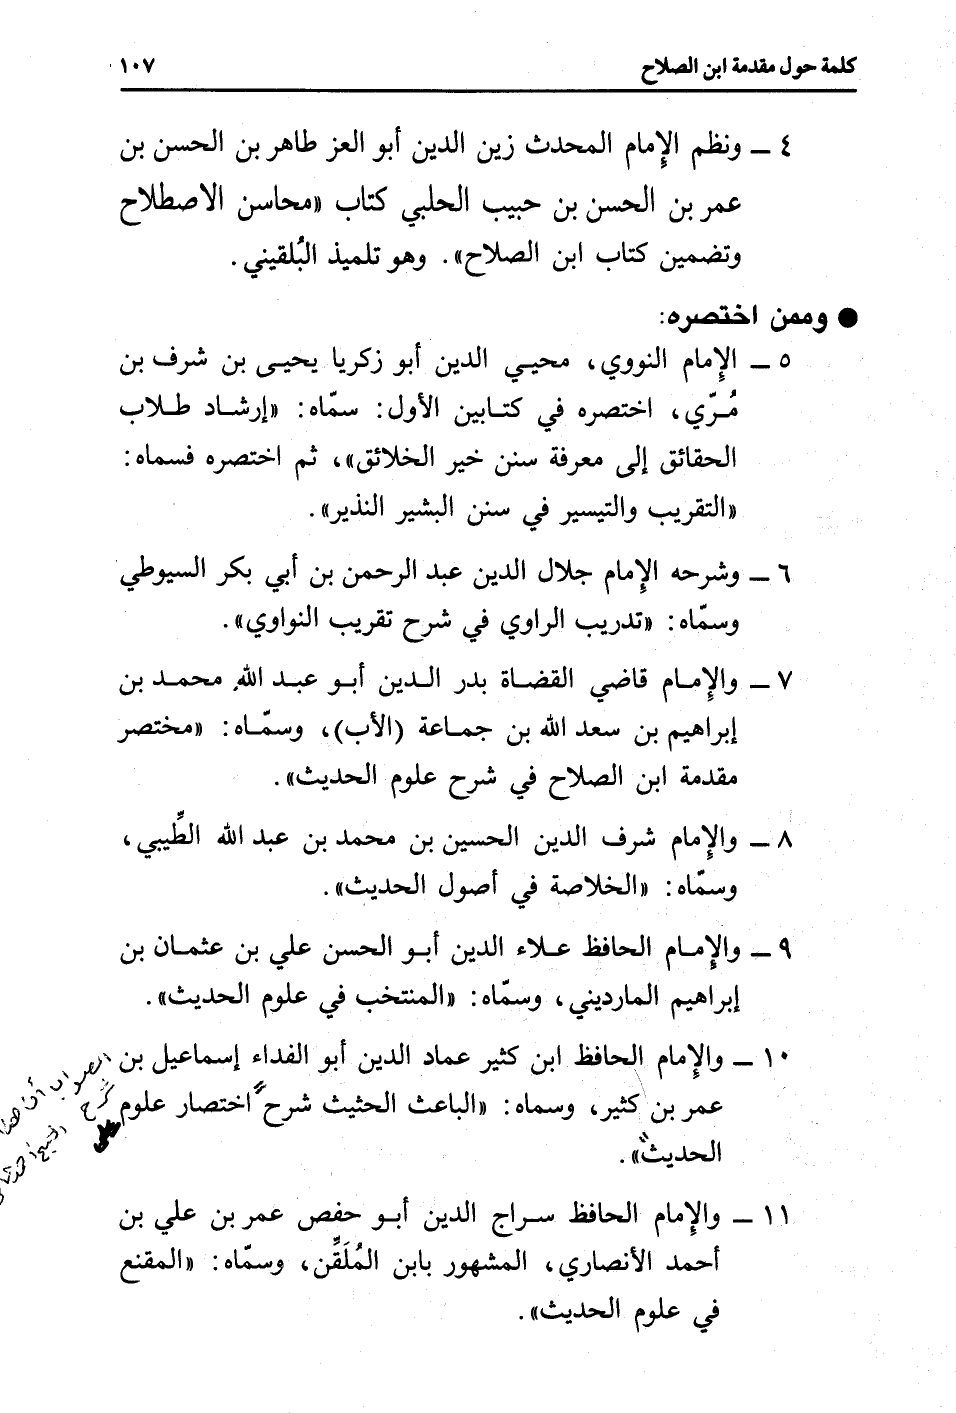 كلمة حول مقدمة ابن الصلاح ١٠٧
٤ ــ ونظم الإمام المحدث زين الدين أبو العز طاهر بن الحسن بن
عمر بن الحسن بن حبيب الحلبي كتاب «محاسن الاصطلاح
وتضمين كتاب ابن الصلاح». وهو تلميذ البُلقيني.
● وممن اختصره:
٥ ــ الإمام النووي، محيي الدين أبو زكريا يحيى بن شرف بن
مُـرّي، اختصره في كتـابين الأول: سمّاه: «إرشـاد طـلاب
الحقائق إلى معرفة سنن خير الخلائق»، ثم اختصره فسماه:
«التقريب والتيسير في سنن البشير النذير».
٦ ــ وشرحه الإمام جلال الدين عبد الرحمن بن أبي بكر السيوطي
وسمّاه: «تدريب الراوي في شرح تقريب النواوي».
٧ ــ والإمـام قاضي القضـاة بدر الـدين أبـو عبـد الله محمـد بن
إبراهيم بن سعد الله بن جمـاعة (الأب)، وسمّـاه: «مختصر
مقدمة ابن الصلاح في شرح علوم الحديث».
٨ ــ والإمام شرف الدين الحسين بن محمد بن عبد الله الطِّيبي،
وسمّاه: «الخلاصة في أصول الحديث».
٩ ــ والإمـام الحافظ عـلاء الدين أبـو الحسن علي بن عثمـان بن
إبراهيم المارديني، وسمّاه: «المنتخب في علوم الحديث».
١٠ ــ والإمام الحافظ ابن كثير عماد الدين أبو الفداء إسماعيل بن
عمر بن كثير، وسماه: «الباعث الحثيث شرح اختصار علوم
الحديث».
١١ ــ والإمام الحافظ سـراج الدين أبـو حفص عمر بن علي بن
أحمد الأنصاري، المشهور بابن المُلَقِّن، وسمّاه: «المقنع
في علوم الحديث».